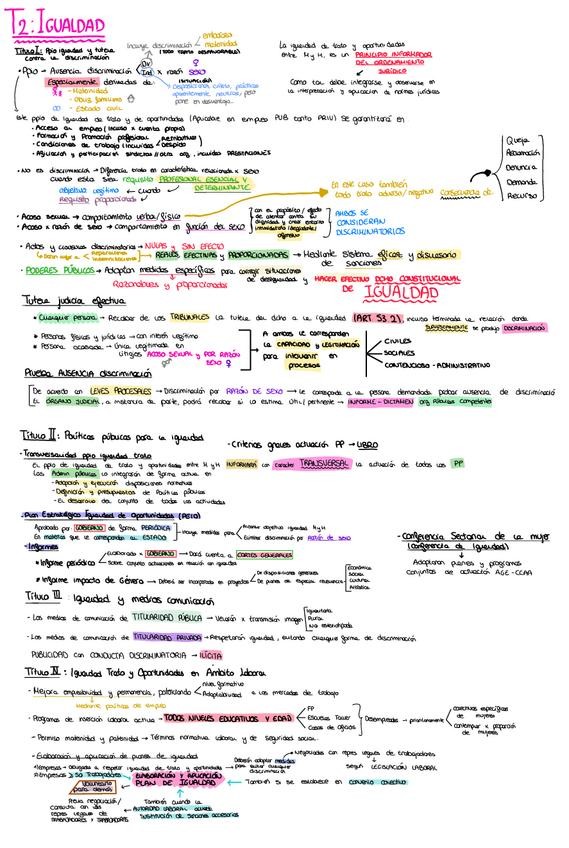 T2: IGUALDAD
Título I: Ppio igualdad y tutela contra la discriminación
Incluye discriminación embarazo maternidad
(TODO TRATO DESFAVORABLE)
Ppio → Ausencia discriminación Dir Ind x razón SEXO
Especialmente derivadas de
- Maternidad
- Oblig familiares
- Estado civil
Disposiciones, criterio, prácticas aparentemente neutras, pero pone en desventaja
La igualdad de trato y oportunidades entre M y H, es un PRINCIPIO INFORMADOR DEL ORDENAMIENTO JURÍDICO
Como tal debe integrarse y observarse en la interpretación y aplicación de normas jurídicas
Este ppio de igualdad de trato y de oportunidades (Aplicable en empleo PUB como PRIV) se garantizará en
- Acceso al empleo (incluso x cuenta propia)
- Formación y Promoción profesional
- Condiciones de trabajo (incluidas retributivas / Despido)
- Afiliación y participación sindicatos u otra org, incluidas PRESTACIONES
Queja
Reclamación
Denuncia
Demanda
Recurso
- No es discriminación → Diferencia trato en característica relacionada x sexo cuando esta sea requisito PROFESIONAL ESENCIAL Y DETERMINANTE
objetivo legítimo ← cuando
Requisito proporcionado
En este caso también todo trato adverso/negativo consecuencia de
- Acoso sexual → comportamiento verbal/físico
- Acoso x razón de sexo → comportamiento en función del sexo
con el propósito/efecto de atentar contra su dignidad y crear entorno intimidatorio/degradante/ofensivo
AMBOS SE CONSIDERAN DISCRIMINATORIOS
- Actos y cláusulas discriminatorias → NULAS Y SIN EFECTO
Reparaciones indemnizaciones REALES, EFECTIVAS y PROPORCIONADAS → Mediante sistema eficaz y disuasorio de sanciones
- PODERES PÚBLICOS → Adoptan medidas específicas para corregir situaciones de desigualdad y HACER EFECTIVO DCHO CONSTITUCIONAL DE IGUALDAD
Razonables y proporcionadas
Tutela judicial efectiva
Cualquier persona → Recabar de los TRIBUNALES LA TUTELA del dcho a la igualdad (ART 53.2), incluso terminada la relación donde supuestamente se produjo DISCRIMINACIÓN
Personas físicas y jurídicas → con interés legítimo
Persona acosada → Única legitimada en litigios ACOSO SEXUAL y POR RAZÓN SEXO
A ambas le corresponden la CAPACIDAD y LEGITIMACIÓN para intervenir en procesos
CIVILES
SOCIALES
CONTENCIOSO-ADMINISTRATIVO
Prueba AUSENCIA discriminación
De acuerdo con LEYES PROCESALES → Discriminación por RAZÓN DE SEXO → Le corresponde a la persona demandada probar ausencia de discriminació
El ÓRGANO JUDICIAL, a instancia de parte, podrá recabar si lo estima útil/pertinente → INFORME-DICTAMEN org públicos competentes
Título II: Políticas públicas para la igualdad
- Criterios grales actuación PP → LIBRO
- Transversalidad ppio igualdad trato
El ppio de igualdad de trato y oportunidades entre M y H INFORMARÁ con carácter TRANSVERSAL la actuación de todos los PP
Las Admin públicas lo integran de forma activa en
- Adopción y ejecución disposiciones normativas
- Definición y presupuestos de Políticas públicas
- El desarrollo del conjunto de todas las actividades
- Plan Estratégico Igualdad de Oportunidades (PEIO)
Aprobado por GOBIERNO de forma PERIÓDICA
En materias que le correspondan al ESTADO
Incluye medidas para
Alcanzar objetivo igualdad H y M
Eliminar discriminación por razón de sexo
- Informes
Informe periódico
Elaborado x GOBIERNO → Dará cuenta a CORTES GENERALES
Sobre conjunto actuaciones en relación con igualdad
Informe impacto de Género → Deberá ser incorporado en proyectos
De disposiciones generales
De planes de especial relevancia
Económica
Social
Cultural
Artística
- Conferencia Sectorial de la mujer (Conferencia de Igualdad)
Adoptarán planes y programas conjuntos de actuación AGE-CCAA
Título III: Igualdad y medios comunicación
- Los medios de comunicación de TITULARIDAD PÚBLICA → Velarán x transmisión imagen
Igualitaria
Plural
No estereotipada
- Los medios de comunicación de TITULARIDAD PRIVADA → Respetarán igualdad, evitando cualquier forma de discriminación
PUBLICIDAD con CONDUCTA DISCRIMINATORIA → ILÍCITA
Título IV: Igualdad Trato y Oportunidades en Ámbito laboral
- Mejora empleabilidad y permanencia, potenciando
nivel formativo
Adaptabilidad a los mercados de trabajo
Mediante políticas de empleo
- Programas de inserción laboral activa → TODOS NIVELES EDUCATIVOS Y EDAD
FP
Escuelas Taller
Casas de oficios
Desempleados → prioritariamente
colectivos específicos de mujeres
contemplar x proporción de mujeres
- Permiso maternidad y paternidad → Términos normativa laboral y de Seguridad social
- Elaboración y aplicación de planes de igualdad
Empresas → obligadas a respetar igualdad de trato y oportunidades
Deberán adoptar medidas para evitar cualquier discriminación
Negociadas con repres legales de trabajadores según LEGISLACIÓN LABORAL
Empresas ≥ 50 Trabajadores
ELABORACIÓN Y APLICACIÓN PLAN DE IGUALDAD
También si se establece en convenio colectivo
Voluntario para demás
Previa negociación/consulta con los repres legales de TRABAJADORES X TRABAJADORAS
También cuando la AUTORIDAD LABORAL acuerde SUSTITUCIÓN de sanciones accesorias